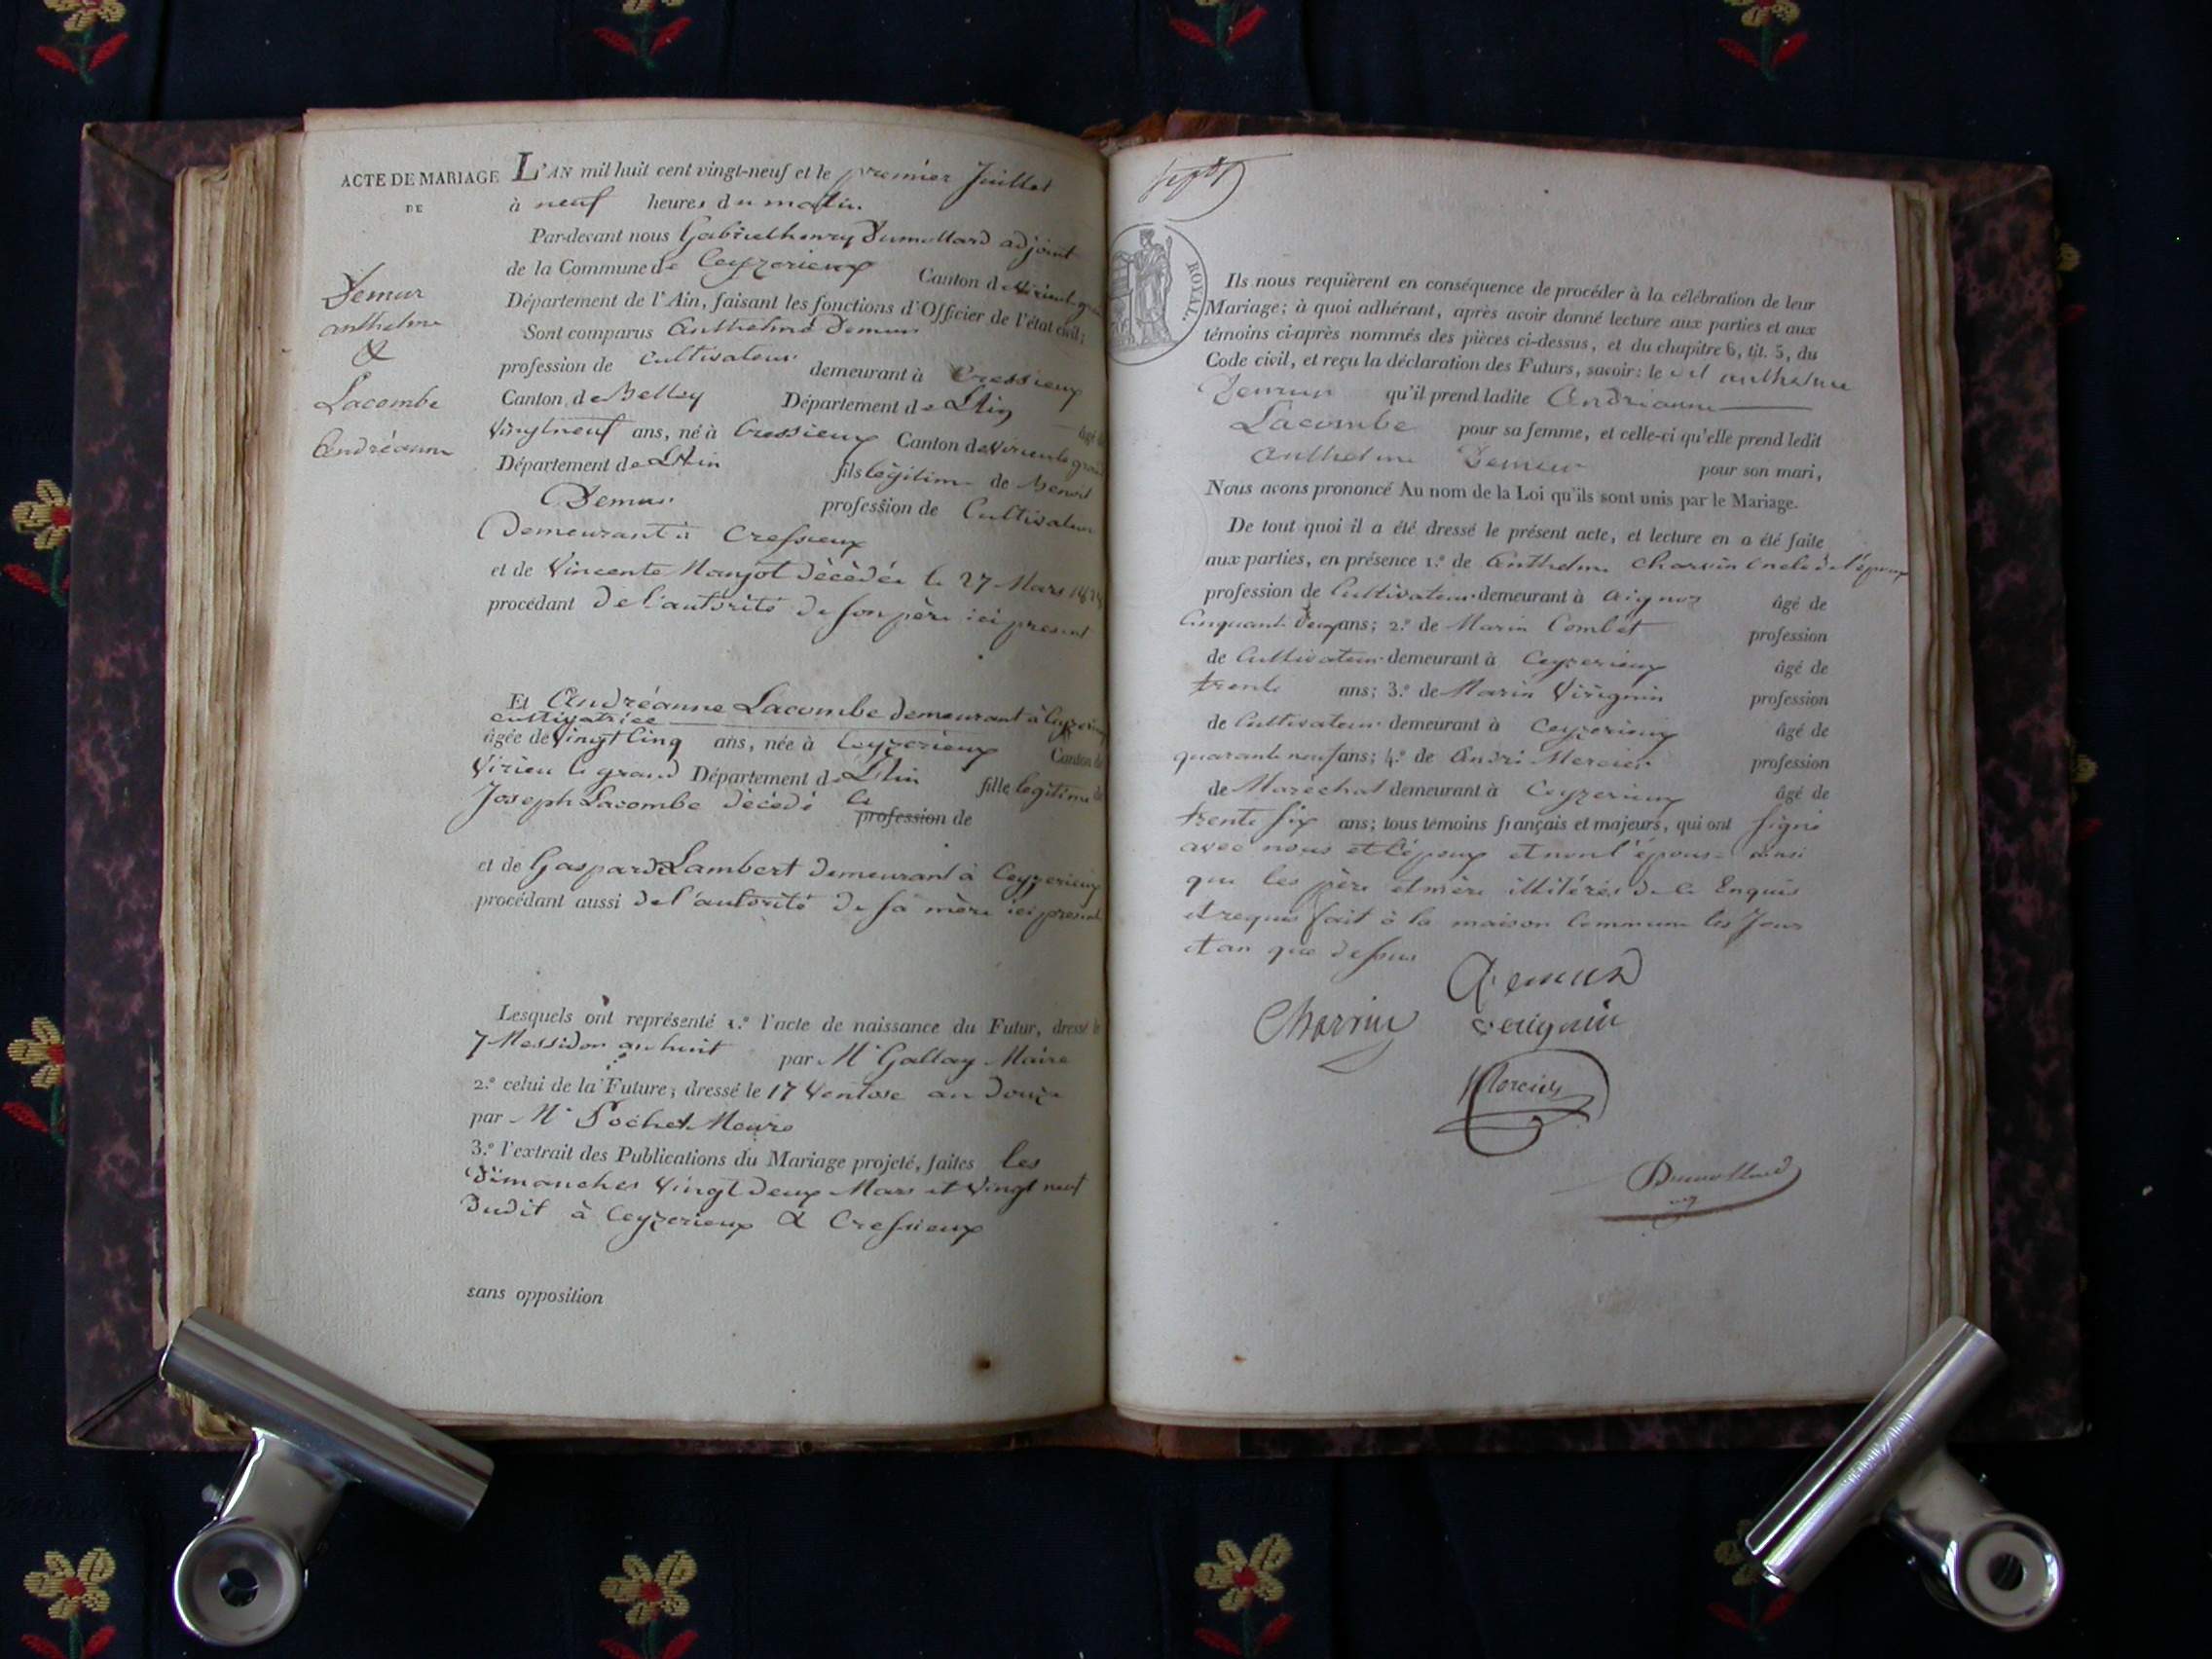 ACTE DE MARIAGE
DE
Demur
anthelme
&
Lacombe
Andréanne
L'AN mil huit cent vingt-neuf et le premier Juillet
à neuf heures du matin.
Par-devant nous Gabriel henry Dumollard adjoint
de la Commune de Ceyzerieux Canton de Virieu le grand
Département de l'Ain, faisant les fonctions d'Officier de l'état civil;
Sont comparus Anthelme Demur
profession de Cultivateur demeurant à Cressieux
Canton de Belley Département de L'Ain âgé de
Vingtneuf ans, né à Cressieux Canton de Virieu le grand
Département de L'Ain fils légitime de Benoit
Demur profession de Cultivateur
Demeurant à Cressieux
et de Vincente Manjot décédée le 27 Mars
procédant de l'autorité de son père ici present
Et Andréanne Lacombe demeurant à Ceyzerieux
cultivatrice
âgée de Vingt Cinq ans, née à Ceyzerieux Canton de
Virieu le grand Département de L'Ain fille légitime de
Joseph Lacombe décédé le
profession de
et de Gasparde Lambert demeurant à Ceyzerieux
procédant aussi de l'autorité de sa mère ici present
Lesquels ont représenté 1.º l'acte de naissance du Futur, dressé le
7 Messidor an huit par Mr Gallay Maire
2.º celui de la Future; dressé le 17 Ventose an Douze
par Mr Pochet Maire
3.º l'extrait des Publications du Mariage projeté, faites les
Dimanches Vingt deux Mars et Vingt neuf
Dudit à Ceyzerieux & Cressieux
sans opposition
ROYAL.
Ils nous requièrent en conséquence de procéder à la célébration de leur
Mariage; à quoi adhérant, après avoir donné lecture aux parties et aux
témoins ci-après nommés des pièces ci-dessus, et du chapitre 6, tit. 5, du
Code civil, et reçu la déclaration des Futurs, savoir: le dit anthelme
Demur qu'il prend ladite Andrianne
Lacombe pour sa femme, et celle-ci qu'elle prend ledit
Anthelme Demur pour son mari,
Nous avons prononcé Au nom de la Loi qu'ils sont unis par le Mariage.
De tout quoi il a été dressé le présent acte, et lecture en a été faite
aux parties, en présence 1.º de Anthelme Charvin Oncle de l'époux
profession de Cultivateur demeurant à Aignoz âgé de
Cinquante Deux ans; 2.º de Marin Combet profession
de Cultivateur demeurant à Ceyzerieux âgé de
trente ans; 3.º de Marin Virignin profession
de Cultivateur demeurant à Ceyzerieux âgé de
quarante neuf ans; 4.º de André Mercier profession
de Maréchal demeurant à Ceyzerieux âgé de
trente six ans; tous témoins français et majeurs, qui ont signé
avec nous et l'époux et non l'épouse ainsi
que les père et mère illitérés de ce Enquis
et requis fait à la maison Commune les Jour
et an que dessus
Demur
Charvin Verignin
Mercier
Dumollard